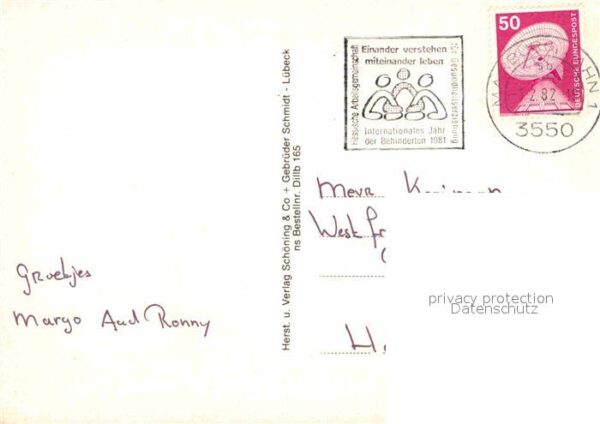 Groetjes
Margo Aad Ronny
Herst. u. Verlag Schöning & Co + Gebrüder Schmidt - Lübeck
ns Bestellnr. Dillb 165
Einander verstehen
miteinander leben
Hessische Arbeitsgemeinschaft
für Gesundheitserziehung
Internationales Jahr
der Behinderten 1981
50
DEUTSCHE BUNDESPOST
2.82
3550
Mevr
West
privacy protection
Datenschutz